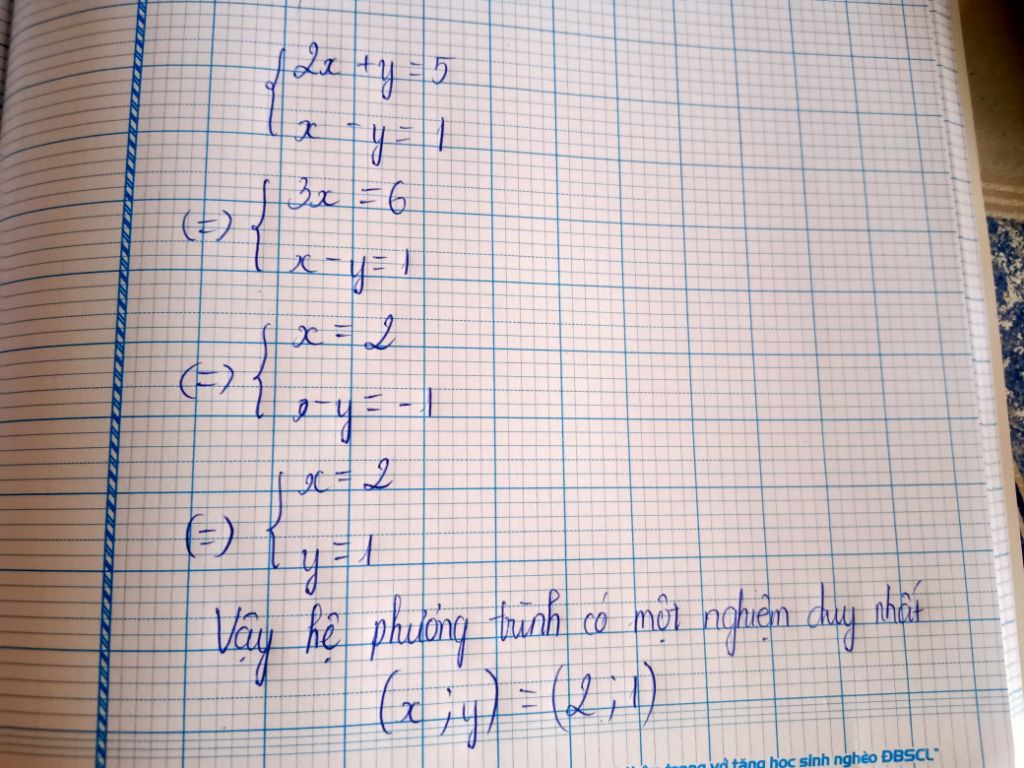 2x + y = 5
x - y = 1
(=) 3x = 6
x - y = 1
(=) x = 2
- y = - 1
(=) x = 2
y = 1
Vậy hệ phương trình có một nghiệm duy nhất
(x ; y) = (2 ; 1)
trong vở tặng học sinh nghèo ĐBSCL"